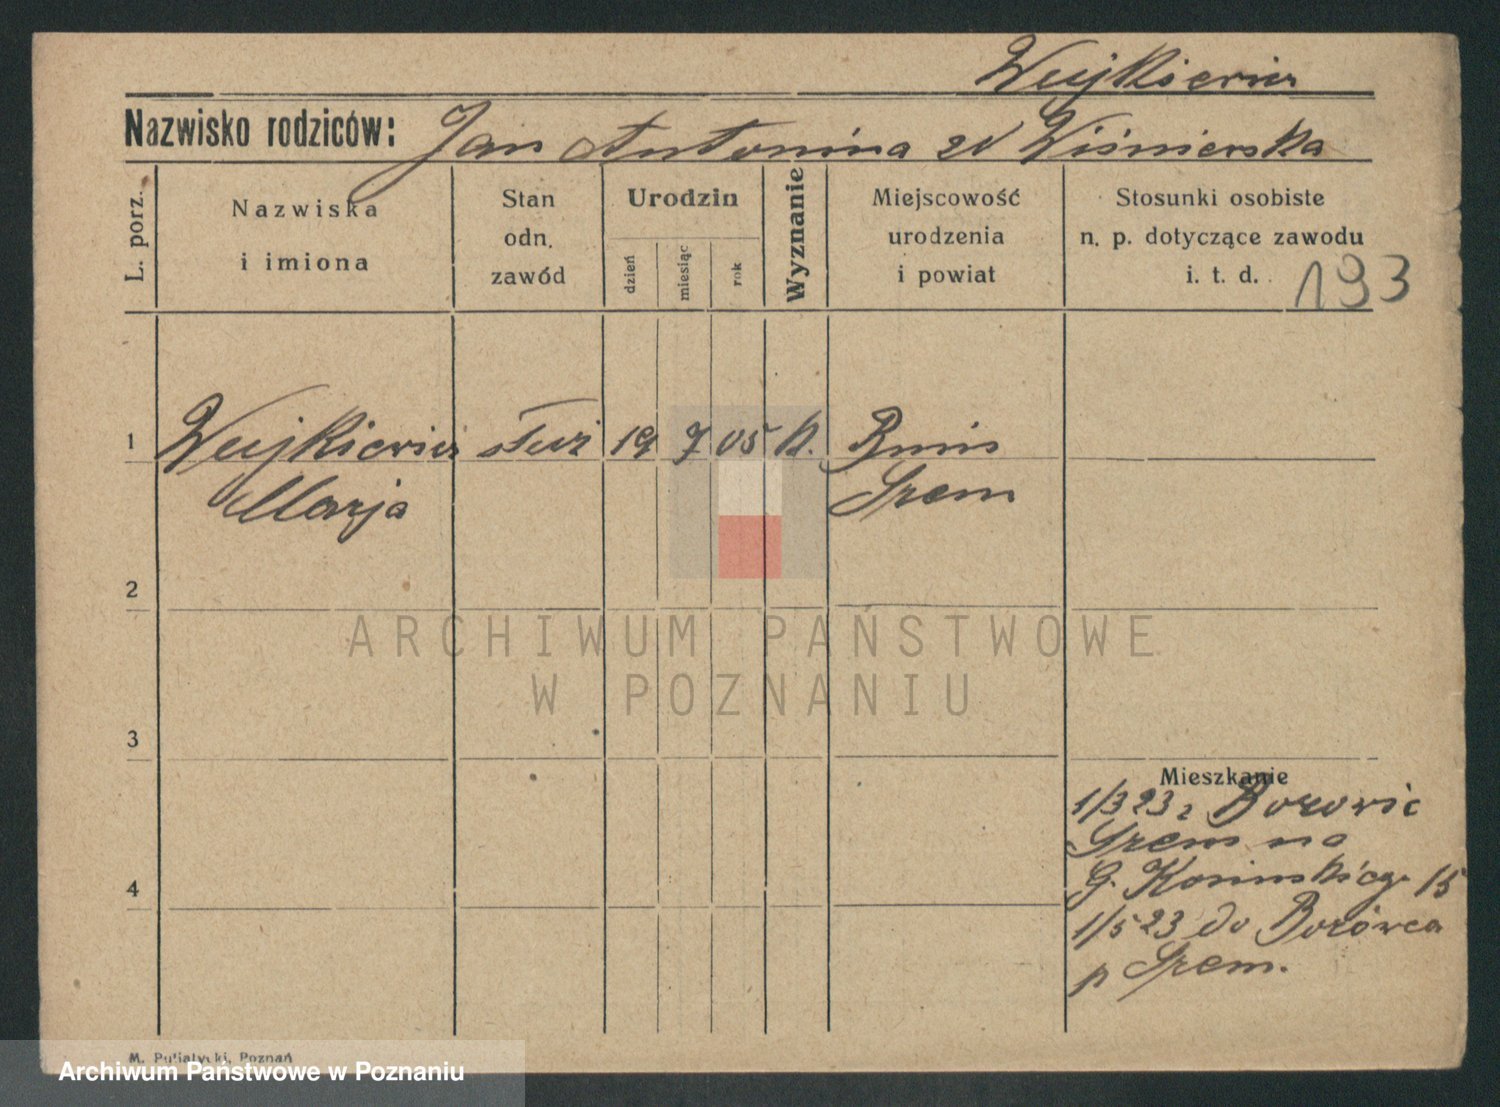 Wujkiewicz
Nazwisko rodziców: Jan Antonina zd Wiśniewska
L. porz.
Nazwiska
i imiona
Stan
odn.
zawód
Urodzin
dzień
miesiąc
rok
Wyznanie
Miejscowość
urodzenia
i powiat
Stosunki osobiste
n. p. dotyczące zawodu
i. t. d.
193
1 Wujkiewicz służ 19 7 05 k. Bnin
Marja Śrem
2
3
Mieszkanie
1/3 23 z Borowic
Śrem na
G. Kosińskieg. 15
1/5 23 do Borówca
p Śrem.
4
M. Putiatycki, Poznań
ARCHIWUM PAŃSTWOWE
W POZNANIU
Archiwum Państwowe w Poznaniu